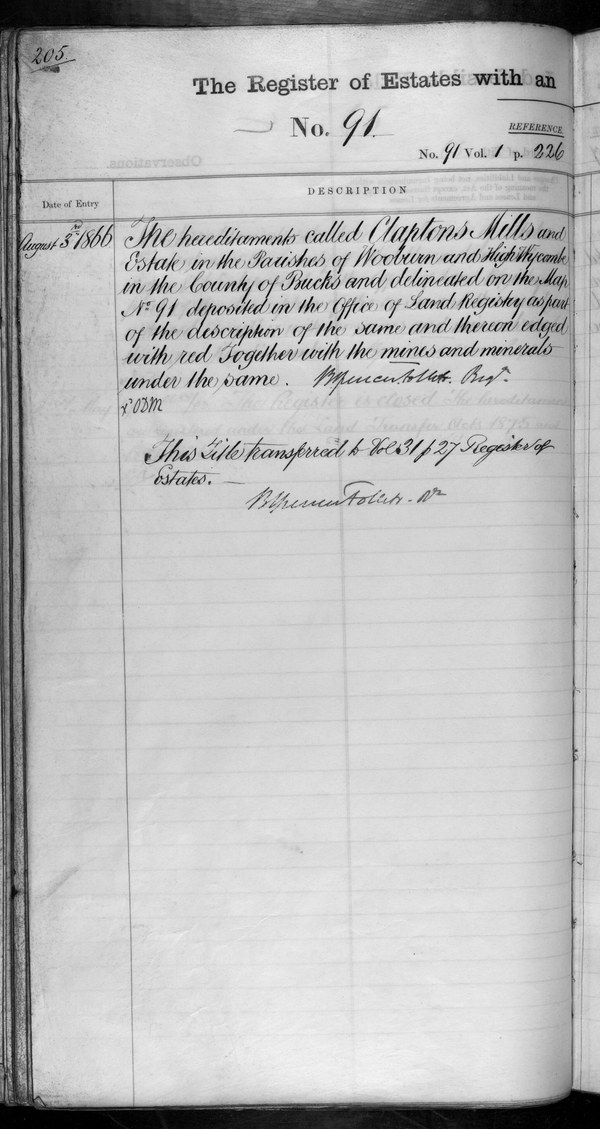 205.
The Register of Estates with an
No. 91.
REFERENCE.
No. 91 Vol. 1 p. 226
Date of Entry
DESCRIPTION
August 3rd 1866
The hereditaments called Claptons Mills and
Estate in the Parishes of Wooburn and High Wycombe
in the County of Bucks and delineated on the Map
No. 91 deposited in the Office of Land Registry as part
of the description of the same and thereon edged
with red Together with the mines and minerals
under the same. B Spencer Follett. Regr.
ODM
This Title transferred to Vol 31 p 27 Register of
Estates. —
B Spencer Follett.